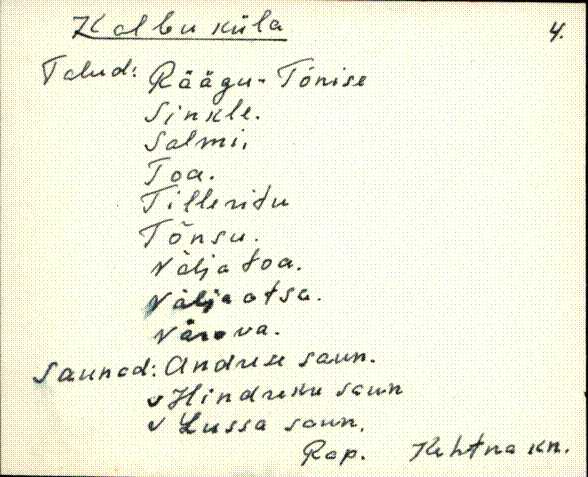 Kalbu küla 4.
Talud: Räägu-Tõnise
Sinkle.
Salmi.
Toa.
Tilleridu
Tõnsu.
Väljatoa.
Väljaotsa.
Värava.
Saunad: Andruse saun.
v Hindreku saun
v Lussa saun.
Rap. Kehtna kn.